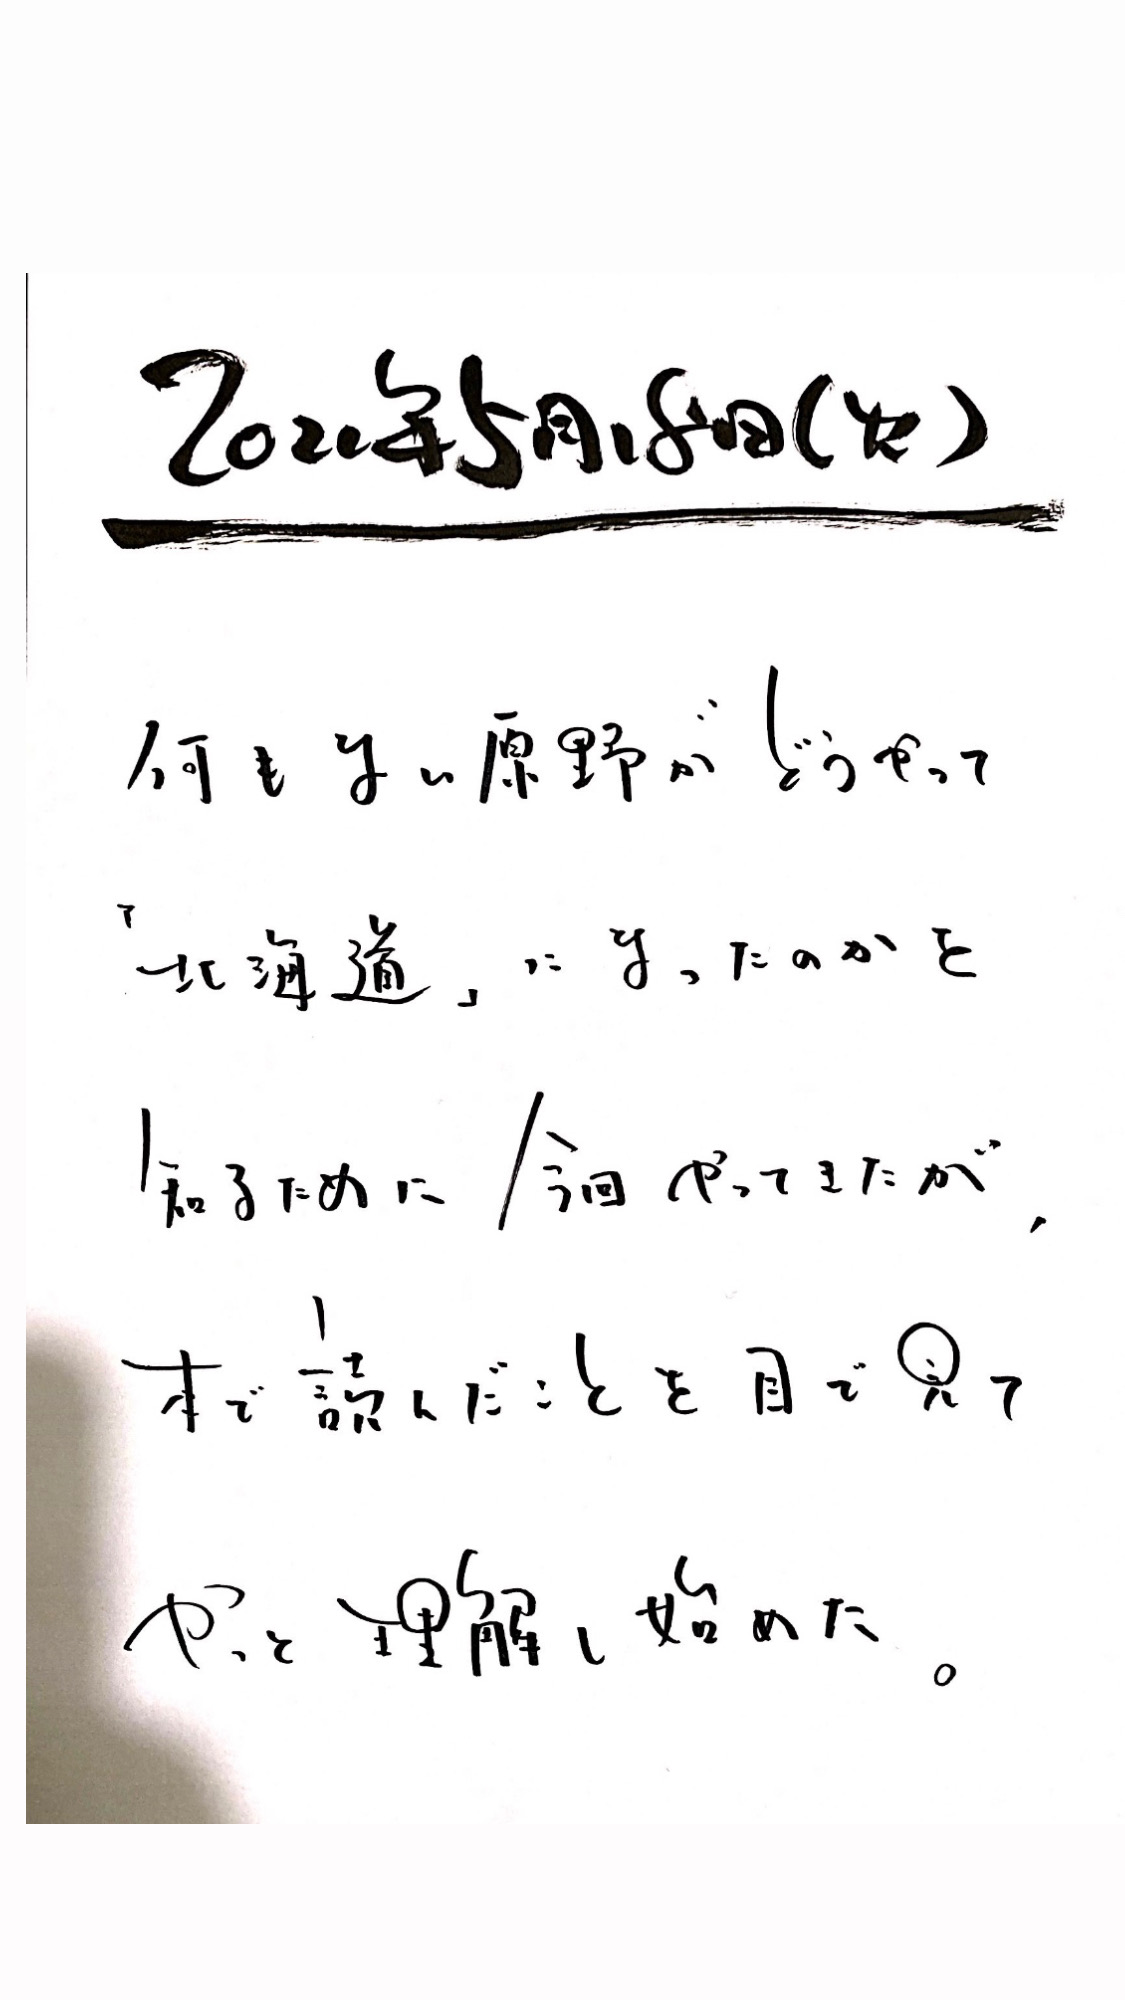 2021年5月18日(火)
何もない原野がどうやって
「北海道」になったのかを
知るために今回やってきたが、
本で読んだことを目で見て
やっと理解し始めた。